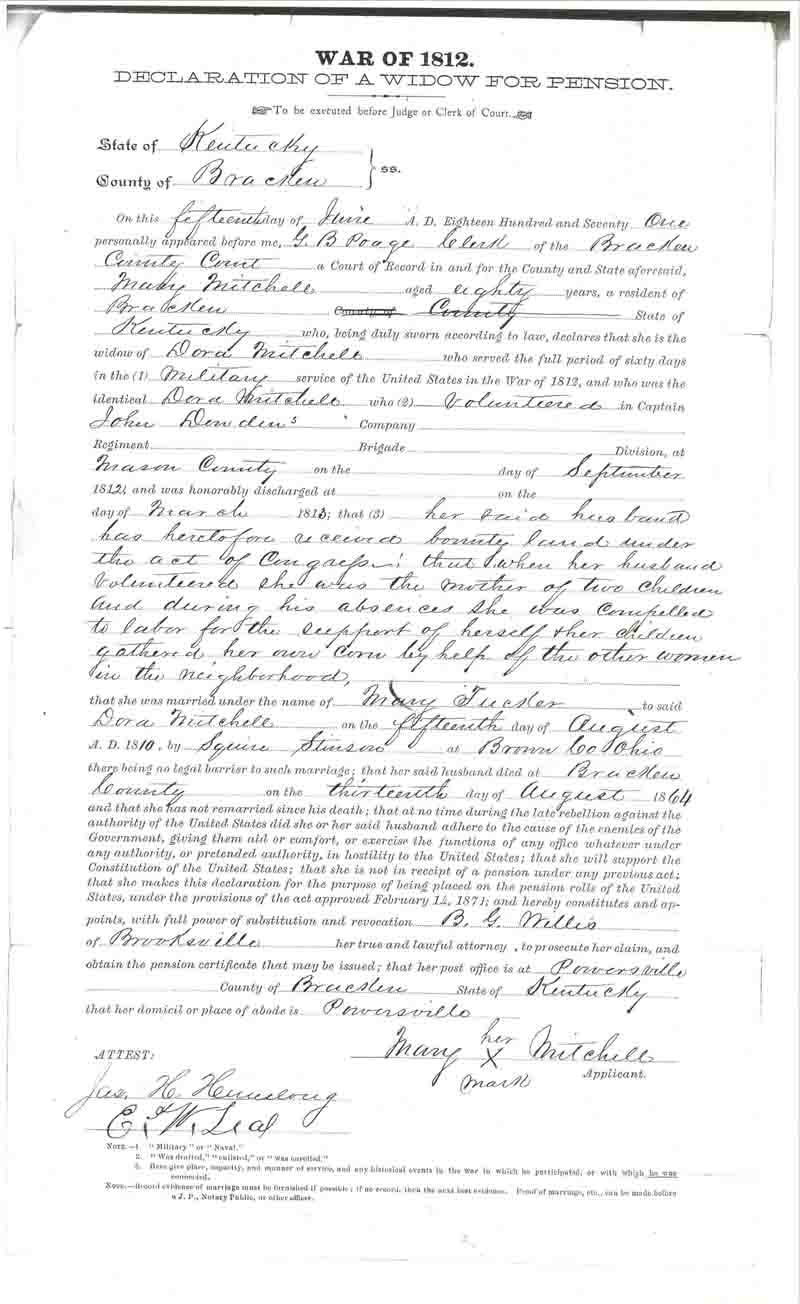 WAR OF 1812.
DECLARATION OF A WIDOW FOR PENSION.
To be executed before Judge or Clerk of Court.
State of Kentucky
County of Bracken } ss.
On this fifteenth day of June A. D. Eighteen Hundred and Seventy One
personally appeared before me, G. B Poage Clerk of the Bracken
County Court a Court of Record in and for the County and State aforesaid,
Mary Mitchell aged eighty years, a resident of
Bracken County of County State of
Kentucky who, being duly sworn according to law, declares that she is the
widow of Dora Mitchell who served the full period of sixty days
in the (1) Military service of the United States in the War of 1812, and who was the
identical Dora Mitchell who (2) Volunteered in Captain
John Dowdens Company
Regiment Brigade Division, at
Mason County on the day of September
1812; and was honorably discharged at on the
day of March 1813; that (3) her said husband
has heretofore received bounty land under
the act of Congress; that when her husband
Volunteered she was the mother of two children
and during his absences she was compelled
to labor for the support of herself & her children
gathered her own corn by help of the other women
in the neighborhood,
that she was married under the name of Mary Tucker to said
Dora Mitchell on the fifteenth day of August
A. D. 1810, by Squire Stinson at Brown Co Ohio
there being no legal barrier to such marriage; that her said husband died at Bracken
County on the thirteenth day of August 1864
and that she has not remarried since his death; that at no time during the late rebellion against the
authority of the United States did she or her said husband adhere to the cause of the enemies of the
Government, giving them aid or comfort, or exercise the functions of any office whatever under
any authority, or pretended authority, in hostility to the United States; that she will support the
Constitution of the United States; that she is not in receipt of a pension under any previous act;
that she makes this declaration for the purpose of being placed on the pension rolls of the United
States, under the provisions of the act approved February 14, 1871; and hereby constitutes and ap-
points, with full power of substitution and revocation B. G. Willis
of Brooksville her true and lawful attorney, to prosecute her claim, and
obtain the pension certificate that may be issued; that her post office is at Powersville
County of Bracken State of Kentucky
that her domicil or place of abode is Powersville
Mary her X mark Mitchell
ATTEST: Applicant.
Jas. H.
E. W. Leal
NOTE.—1. "Military" or "Naval."
2. "Was drafted," "enlisted," or "was enrolled."
3. Here give place, capacity, and manner of service, and any historical events in the war in which he participated, or with which he was
connected.
NOTE.—Record evidence of marriage must be furnished if possible; if no record, then the next best evidence. Proof of marriage, etc., can be made before
a J. P., Notary Public, or other officer.